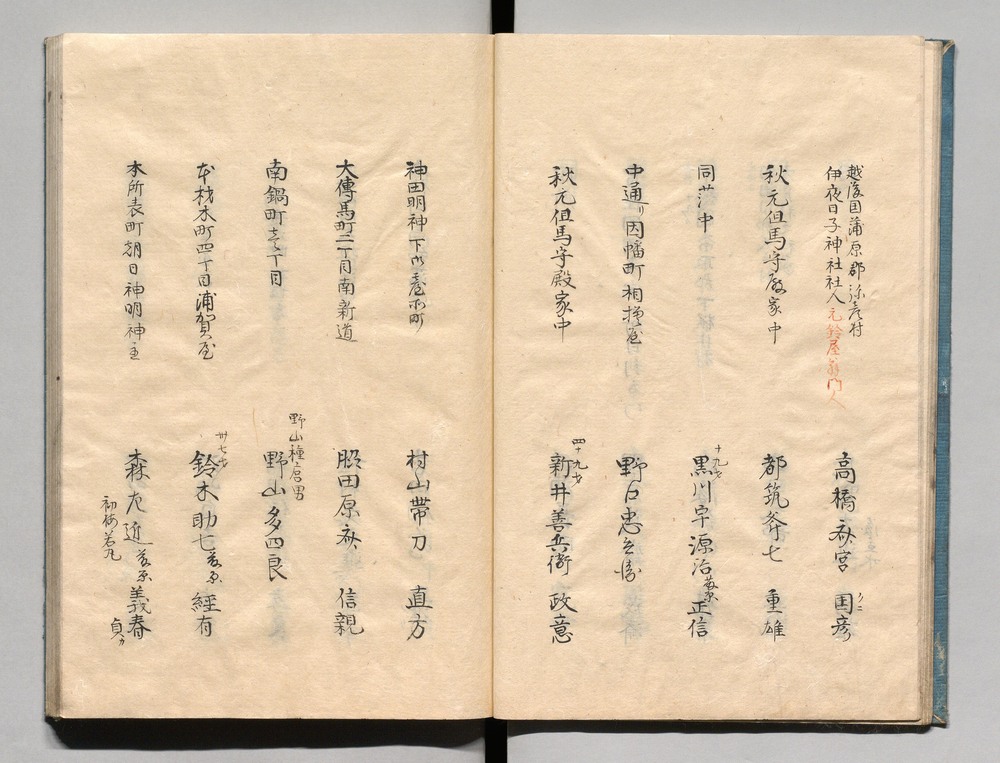 越後国蒲原郡弥彦村
伊夜日子神社社人 元鈴屋翁門人
高橋 国彦
クニ
秋元但馬守殿家中
都筑 七 重雄
同藩中
十九才
黒川 源治 藤原 正信
中通り因幡町相摸屋
野口忠
秋元但馬守殿家中
四十九才
新井善兵衛 政意
神田明神下御臺所町
村山帯刀 直方
大傳馬町二丁目南新道
照田原 信親
南鍋町壱丁目
野山種 男
野山多四良
本材木町四丁目浦賀屋
卅七才
鈴木助七 藤原 經有
本所表町朝日神明神主
森左近 藤原 義春
初 若丸
貞カ